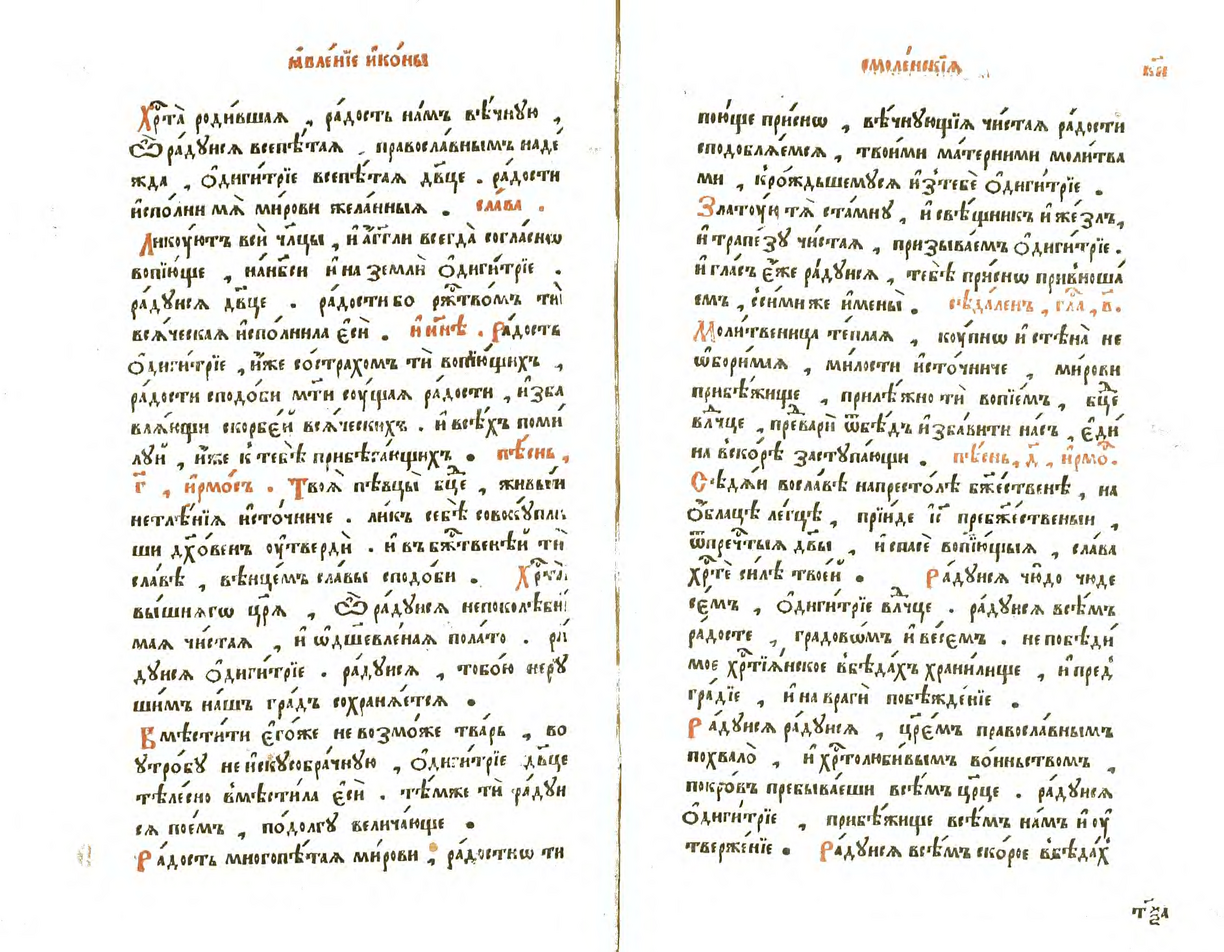 ꙗ҆вле́нїе и҆ко́ны
Хрⷭ҇та̀ роди́вшаѧ , ра́дость на́мъ вѣ́чнꙋю ,
Ѽ ра́дꙋисѧ всепѣ́таѧ , правосла́внымъ наде
жда , Ѻ҆диги́трїе всепѣ́таѧ дв҃це . ра́дости
и҆спо́лни мѧ̀ ми́рови жела́нныѧ . сла́ва .
Ликꙋ́ютъ всѝ чл҃цы , и҆ а҆́гг҃ли всегда̀ согла́снѡ
вопїю́ще , на́нб҃си и҆ на землѝ Ѻ҆диги́трїе .
ра́дꙋисѧ дв҃це . ра́дости бо рж҃тво́мъ тѝ
всѧ́ческаѧ и҆спо́лнила є҆сѝ . и҆ ны́нѣ . Ра́дость
Ѻ҆диги́трїе , и҆́же со́страхомъ тѝ вопїю́щихъ ,
ра́дости сподо́би мт҃и сꙋ́щаѧ ра́дости , и҆зба
влѧ́ющи скорбе́й всѧ́ческихъ . и҆ всѣ́хъ поми
лꙋ́й , и҆́же к̾ тебѣ̀ прибѣга́ющихъ . пѣ́снь ,
г҃ , и҆рмо́съ . Твоѧ̀ пѣвцы̀ бц҃е , живы́и
нетлѣ́нїѧ и҆сто́чниче . ли́къ себѣ̀ совокꙋ́пль
ши дꙋхо́венъ ᲂу҆твердѝ . и҆ въ бж҃твенѣ́й тѝ
сла́вѣ , вѣнце́мъ сла́вы сподо́би . Хрⷭ҇та̀
вы́шнѧгѡ цр҃ѧ̀ , Ѽ ра́дꙋисѧ непоколѣби́
маѧ чи́стаѧ , и҆ ѡ҆дш҃евле́наѧ пола́то . ра́
дꙋисѧ Ѻ҆диги́трїе . ра́дꙋисѧ , тобо́ю нерꙋ
ши́мъ на́шъ гра́дъ сохранѧ́етсѧ .
Вмѣсти́ти є҆го́же не возмо́же тва́рь , во
ᲂутро́бꙋ не и҆скꙋсобра́чнꙋю , Ѻ҆диги́трїе дв҃це
тѣле́сно вмѣсти́ла є҆сѝ . тѣ́мже тѝ ра́дꙋи
сѧ пое́мъ , по́долгꙋ велича́юще .
Ра́дость многопѣ́таѧ ми́рови , ра́достнѡ ти
смоле́нскїѧ
к҃и
пою́ще при́снѡ , вѣ́чнꙋющїѧ чи́стаѧ ра́дости
сподоблѧ́емсѧ , твои́ми ма́терними моли́тва
ми , кро́ждьшемꙋсѧ и҆з̾ тебѐ Ѻ҆диги́трїе .
Златꙋ́ю тѧ̀ ста́мнꙋ , и҆ свѣ́щникъ и҆ же́злъ ,
и҆ трапе́зꙋ чи́стаѧ , призыва́емъ Ѻ҆диги́трїе .
и҆ гла́съ є҆́же ра́дꙋисѧ , тебѣ̀ при́снѡ приноша́
емъ , с̾си́ми же и҆мены̀ . сѣда́ленъ , гла́ , в҃ .
Моли́твеница те́плаѧ , кꙋ́пнѡ и҆ стѣна̀ не
ѡ҆бори́маѧ , ми́лости и҆сто́чниче , ми́рови
прибѣ́жище , прилѣ́жно тѝ вопїе́мъ , бц҃е
влⷣчце , предварѝ ѿбѣ́дъ и҆збавити на́съ , є҆ди́
на вско́рѣ застꙋпа́ющи . пѣ́снь , д҃ , и҆рмо́ .
Сѣдѧ́и восла́вѣ напресто́лѣ бж҃е́ственѣ , на
ѻ҆́блацѣ ле́гцѣ , прїи́де і҆с҃ пребж҃е́ственыи ,
ѿпречⷭ҇тыѧ дв҃ы , и҆ спасѐ вопїю́щыѧ , сла́ва
хрⷭ҇тѐ си́лѣ твое́й . Ра́дꙋисѧ чю́до чюде
се́мъ , Ѻ҆диги́трїе влⷣчце . ра́дꙋисѧ всѣ́мъ
ра́досте , градовѡ́мъ и҆ ве́семъ . не побѣди́
мое хрⷭ҇тїѧ́нское вбѣда́хъ храни́лище , и҆ пред̾
гра́дїе , и҆ на врагѝ побѣжде́нїе .
Ра́дꙋисѧ ра́дꙋисѧ , цр҃е́мъ правосла́внымъ
похвало̀ , и҆ хрⷭ҇толюби́вымъ во́иньствомъ ,
покро́въ пребыва́еши всѣ́мъ цр҃це . ра́дꙋисѧ
Ѻ҆диги́трїе , прибѣ́жище всѣ́мъ на́мъ и҆ ᲂу҆
тверже́нїе . Ра́дꙋисѧ всѣ́мъ ско́рое вбѣда́х̾